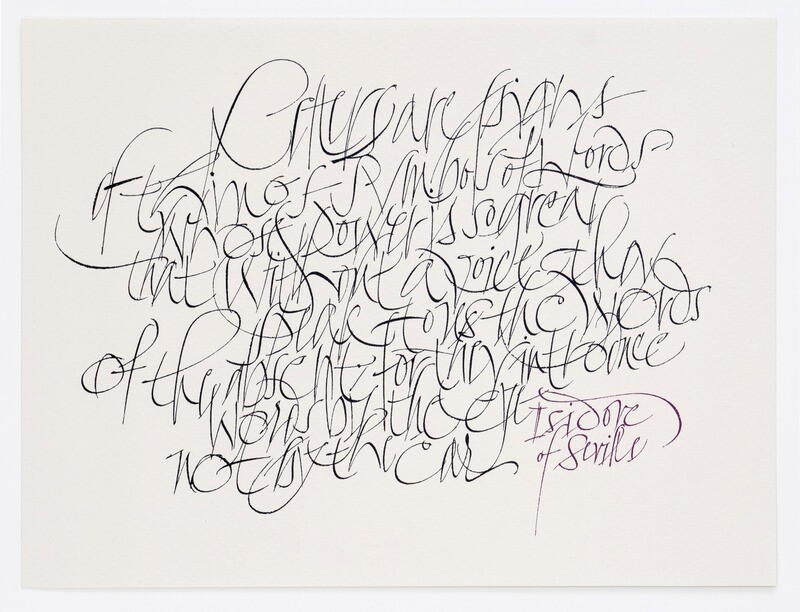 Letters are signs
of things symbols of words
whose power is so great
that without a voice they
speak to us the words
of the absent; for they introduce
words by the eye
not by the ear
Isidore
of Seville